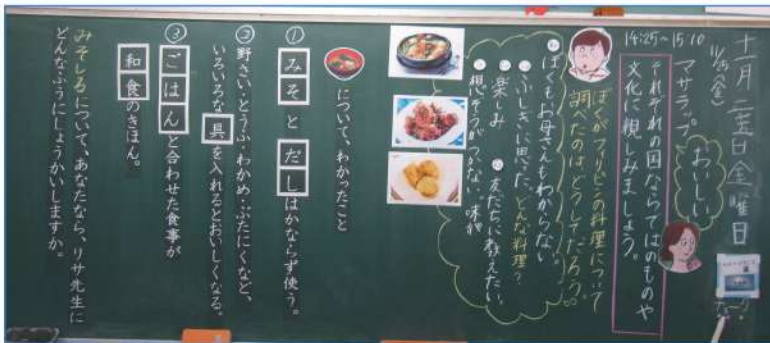 十一月二十五日金曜日
11/25(金)
14:25~15:10
マサラップ
おいしい
それぞれの国ならではのものや
文化に親しみましょう。
ぼくがフィリピンの料理について
調べたのは、どうしてだろう。
ぼくもお母さんもわからない。
ふしぎに思った。どんな料理?
楽しみ
友だちに教えたい。
想ぞうがつかない味
について、わかったこと
① みそ と だし はかならず使う。
② 野さい・とうふ・わかめ・ぶたにくなど、
いろいろな 具 を入れるとおいしくなる。
③ ごはん と合わせた食事が
和食 のきほん。
みそしるについて、あなたなら、リサ先生に
どんなふうにしょうかいしますか。